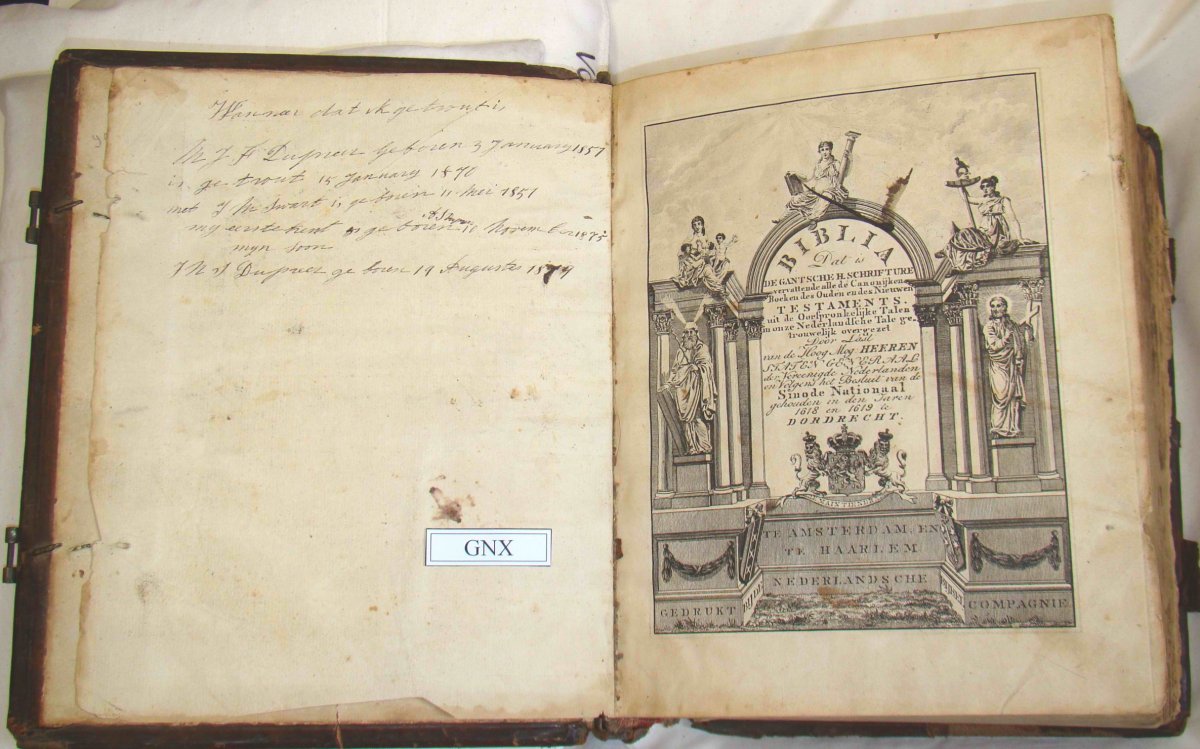 Wannar dat ik getrout is
M J H Dupreez Geboren 3 January 1851
is getrout 15 January 1870
met J M Swart is geboren 11 Mei 1851
myn eerste kent is geboren 10 November 1875
myn soon
J M S Dupreez geboren 19 Augustus 1874
GNX
BIBLIA
Dat is
DE GANTSCHE H. SCHRIFTURE
vervattende alle de Canonijken
Boeken des Ouden en des Nieuwen
TESTAMENTS.
uit de Oorspronkelijke Talen
in onze Nederlandsche Tale ge-
trouwelijk overgezet
Door Last
van de Hoog Mog: HEEREN
STATEN GENERAAL
der Vereenigde Nederlanden
en Volgens het Besluit van de
Sinode Nationaal
gehouden in den Jaren
1618 en 1619 te
DORDRECHT.
TE AMSTERDAM, EN
TE HAARLEM
GEDRUKT BIJ DE NEDERLANDSCHE BIJBEL COMPAGNIE